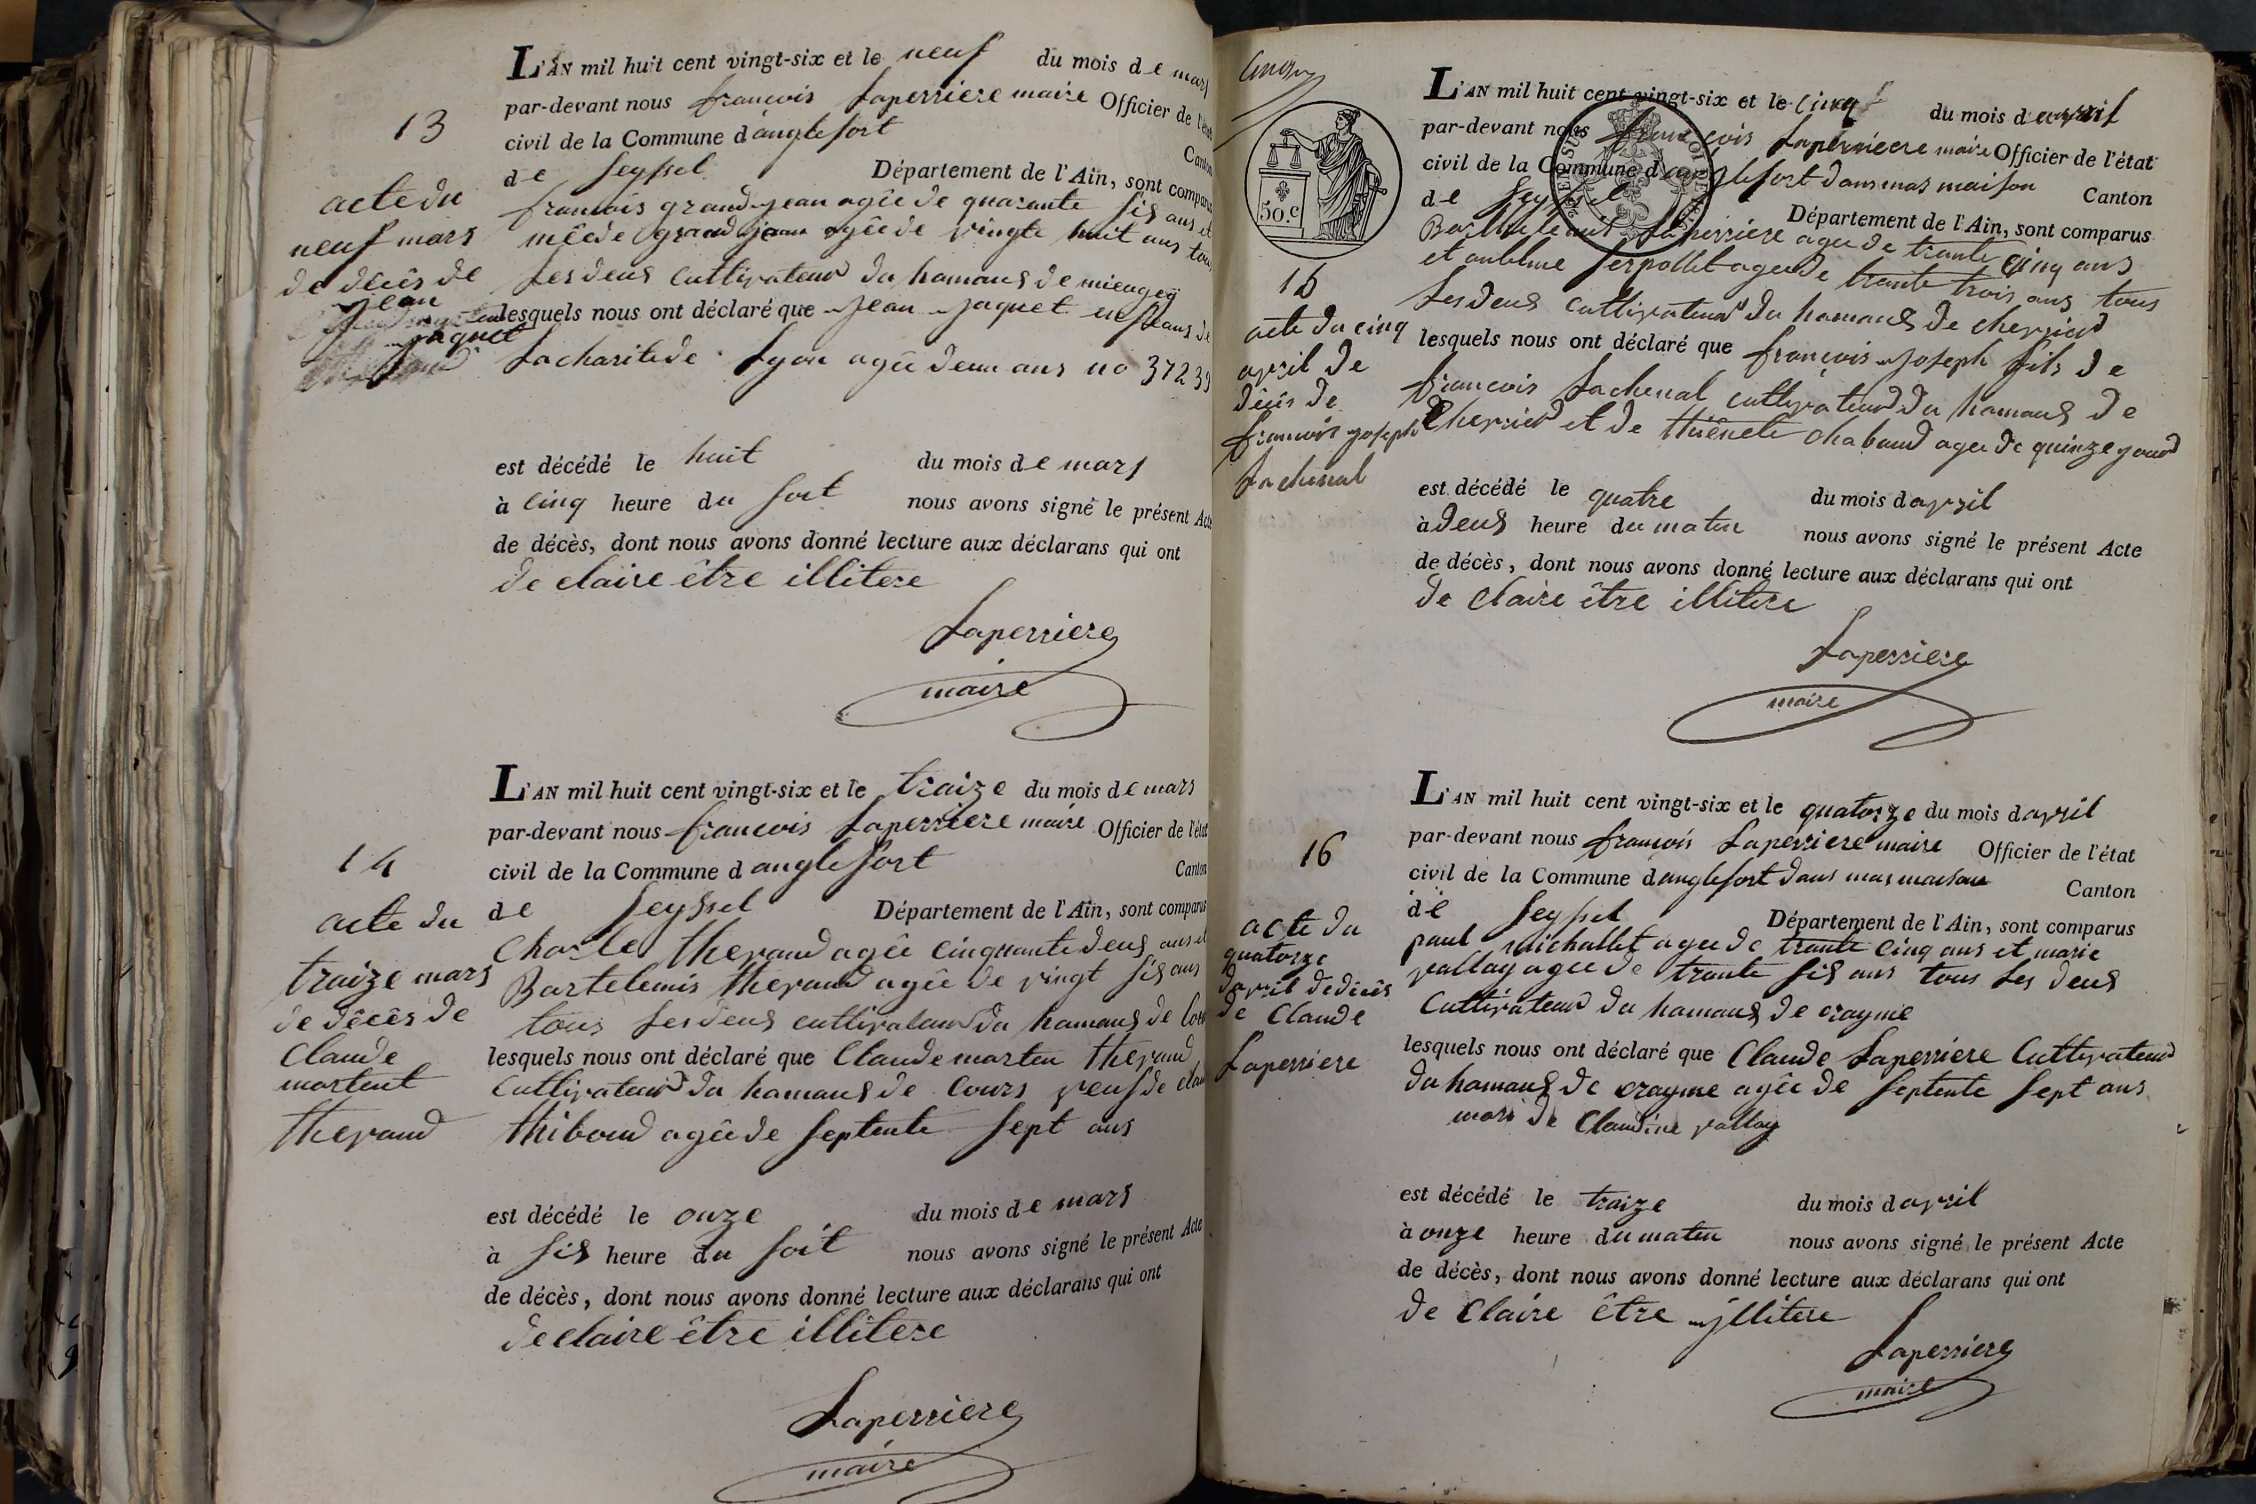 13
acte du
neuf mars
de décès de
jean
jaquet
L'AN mil huit cent vingt-six et le neuf du mois de mars
par-devant nous françois Laperriere maire Officier de l'état
civil de la Commune d'anglefort Canton
de Seyssel Département de l'Ain, sont comparus
francois grand-jean agêe de quarante sis ans et
grand jean agêe de vingte huit ans tous
Les deus cultivateurs du hamaus de
lesquels nous ont déclaré que jean jaquet enfeans de
La charite de Lyon agêe deun ans no 37239
est décédé le huit du mois de mars
à cinq heure du soit nous avons signé le présent Acte
de décès, dont nous avons donné lecture aux déclarans qui ont
de claire être illitere
Laperriere
maire
14
acte du
traize mars
de décês de
Claude
martent
theraud
L'AN mil huit cent vingt-six et le traize du mois de mars
par-devant nous francois Laperriere maire Officier de l'état
civil de la Commune d anglefort Canton
de Seyssel Département de l'Ain, sont comparus
Charle theraud agêe cinquante deus ans et
Bartelemis theraud agêe de vingt sis ans
tous Les deus cultivateurs du hamaus de
lesquels nous ont déclaré que Claude marten theraud
Cultivateurs du hamaus de Cours veuf de
thiboud agêe de septente sept ans
est décédé le onze du mois de mars
à sis heure du soit nous avons signé le présent Acte
de décès, dont nous avons donné lecture aux déclarans qui ont
de claire être illitere
Laperriere
maire
50.c
15
acte du cinq
avril de
décês de
francois joseph
Lachenal
L'AN mil huit cent vingt-six et le cinq du mois d avril
par-devant nous françois Laperriere maire Officier de l'état
civil de la Commune d anglefort dans mas maison Canton
de Seyssel Département de l'Ain, sont comparus
Bartelemis Laperriere agee de trante cinq ans
et serpollet agee de trante trois ans tous
Les deus cultivateurs du hamaus de chevrier
lesquels nous ont déclaré que françois joseph fils de
francois Lachenal cultivateurs du hamaus de
Chevrier et de chaboud agee de quinze jours
est décédé le quatre du mois d avril
à deus heure du maten nous avons signé le présent Acte
de décès, dont nous avons donné lecture aux déclarans qui ont
de claire être illitere
Laperriere
maire
16
acte du
quatorze
davril de decês
de Claude
Laperriere
L'AN mil huit cent vingt-six et le quatorze du mois d avril
par-devant nous françois Laperriere maire Officier de l'état
civil de la Commune d anglefort dans mas maison Canton
de Seyssel Département de l'Ain, sont comparus
paul michallet agee de trante cinq ans et marie
vallay agee de trante sis ans tous Les deus
Cultivateurs du hamaus de crayme
lesquels nous ont déclaré que Claude Laperriere Cultivateurs
du hamaus de crayme agêe de septente sept ans
mari de Claudine vallay
est décédé le traize du mois d avril
à onze heure du maten nous avons signé le présent Acte
de décès, dont nous avons donné lecture aux déclarans qui ont
de Claire être jllitere
Laperriere
maire